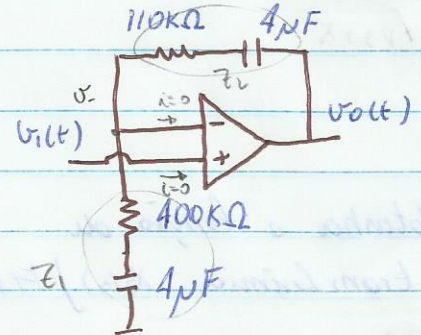 110KΩ 4μF
Z2
v-
i=0
v1(t) - vo(t)
+
i=0
400KΩ
Z1 4μF